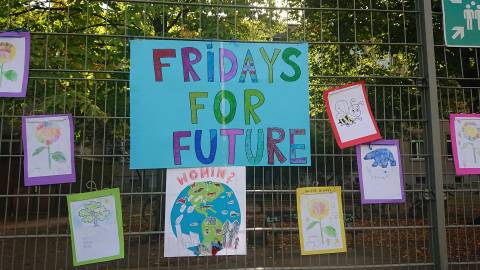 FRiDAYS
FOR
FUTURE
WOHIN?